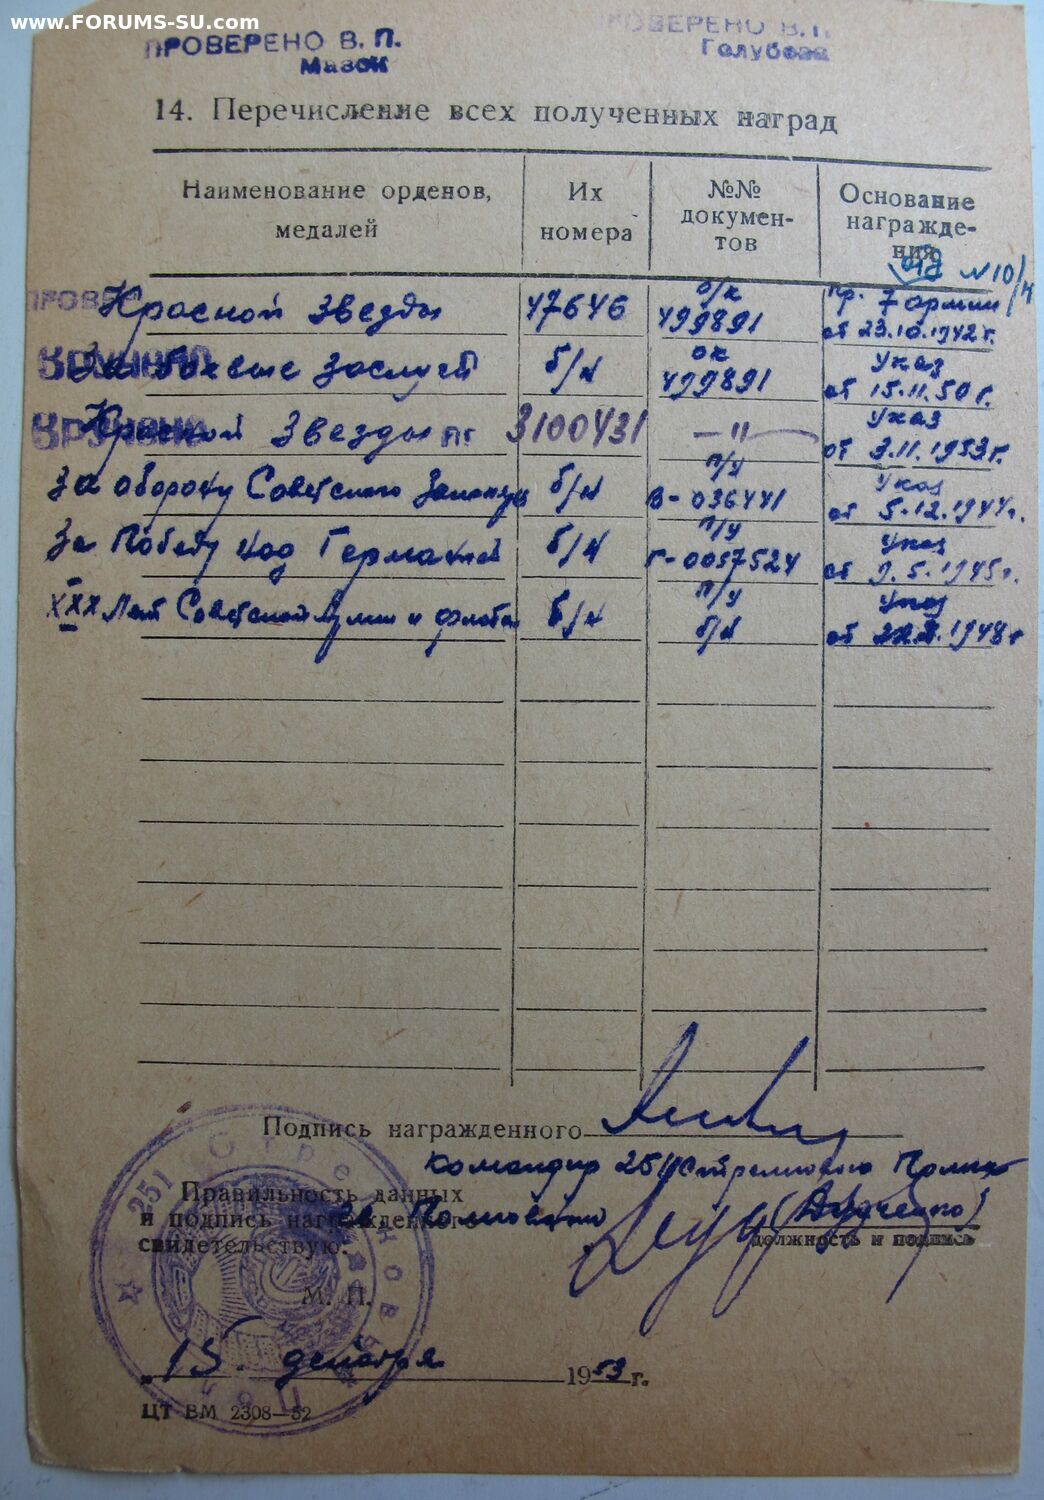 www.FORUMS-SU.com
ПРОВЕРЕНО В. П.
Мазок
ПРОВЕРЕНО В. П.
Голубева
14. Перечисление всех полученных наград
Наименование орденов, медалей
Их номера
№№ докумен-тов
Основание награжде-ния
№10/н
Красной Звезды 47646 о/к 499891 пр. 7 армии от 23.10.1942 г.
За боевые заслуги б/н ок 499891 Указ от 15.11.50 г.
Красной Звезды 3100431 — " — Указ от 3.11.1953 г.
За оборону Советского Заполярья б/н п/у В-036441 Указ от 5.12.1944 г.
За Победу над Германией б/н п/у Г-0057524 Указ от 9.5.1945 г.
XXX лет Советской Армии и флота б/н п/у б/н Указ от 1948 г
ВРУЧЕНО
ВРУЧЕНО
Подпись награжденного
Командир 251 Стрелкового Полка
Правильность данных
и подпись награжденного
свидетельствую.
Полковник
должность и подпись
М. П.
„15" декабря 1953 г.
ЦТ ВМ 2308—52